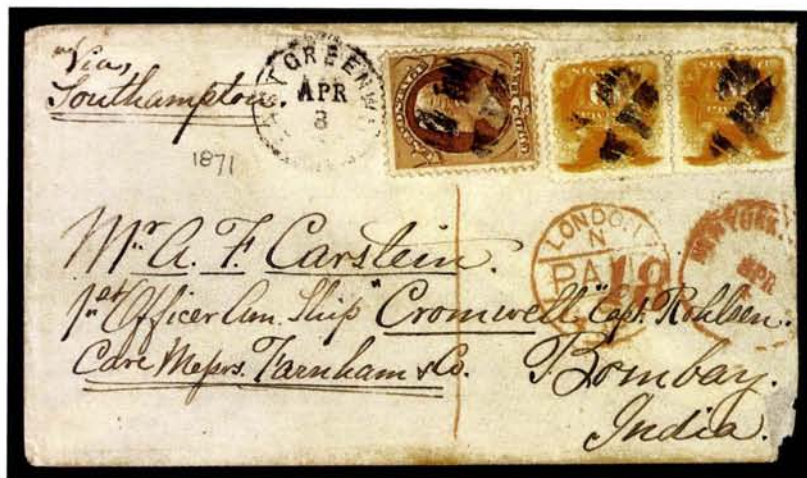 Via,
Southampton.
T GREENW
APR
3
1871
LONDON
N
PAID
18
NEW YORK
APR
Mr. A. F. Carstein.
1st Officer Am. Ship "Cromwell" Capt. Rohlsen.
Care Messrs. Farnham & Co. Bombay.
India.